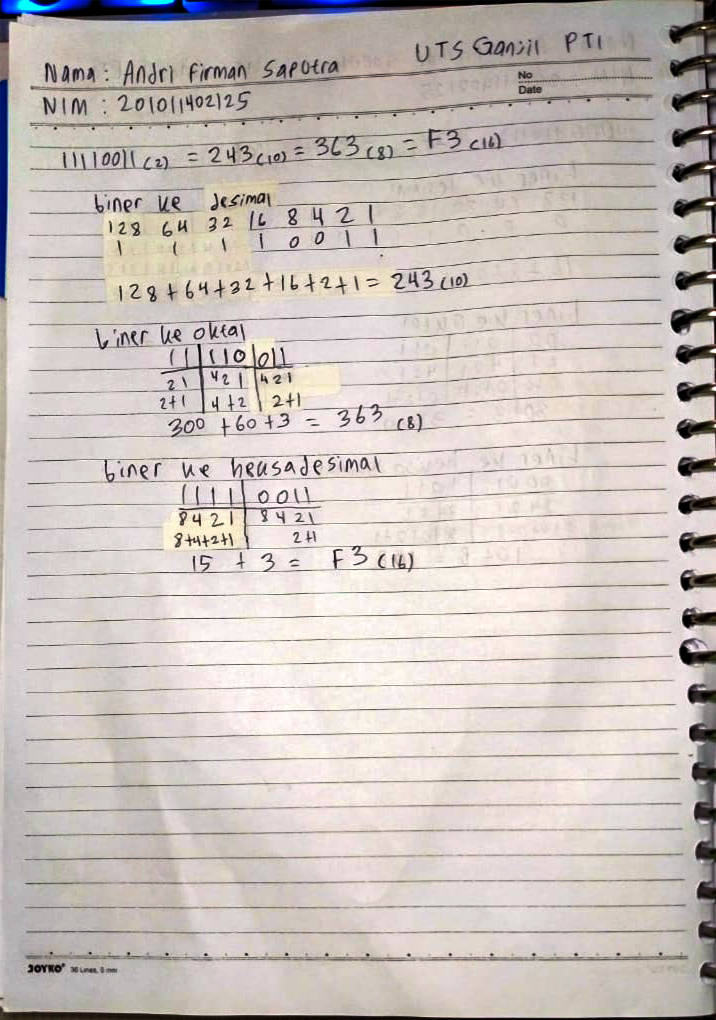 UTS Ganjil PTI
Nama : Andri Firman Saputra
No
NIM : 201011402125
Date
11110011 (2) = 243 (10) = 363 (8) = F3 (16)
biner ke desimal
128 64 32 16 8 4 2 1
1 1 1 1 0 0 1 1
128+64+32+16+2+1= 243 (10)
biner ke oktal
11 | 110 | 011
21 | 421 | 421
2+1 | 4+2 | 2+1
300 +60 +3 = 363 (8)
biner ke heksadesimal
1111 | 0011
8421 | 8421
8+4+2+1 | 2+1
15 + 3 = F3 (16)
JOYKO 36 Lines, 8 mm